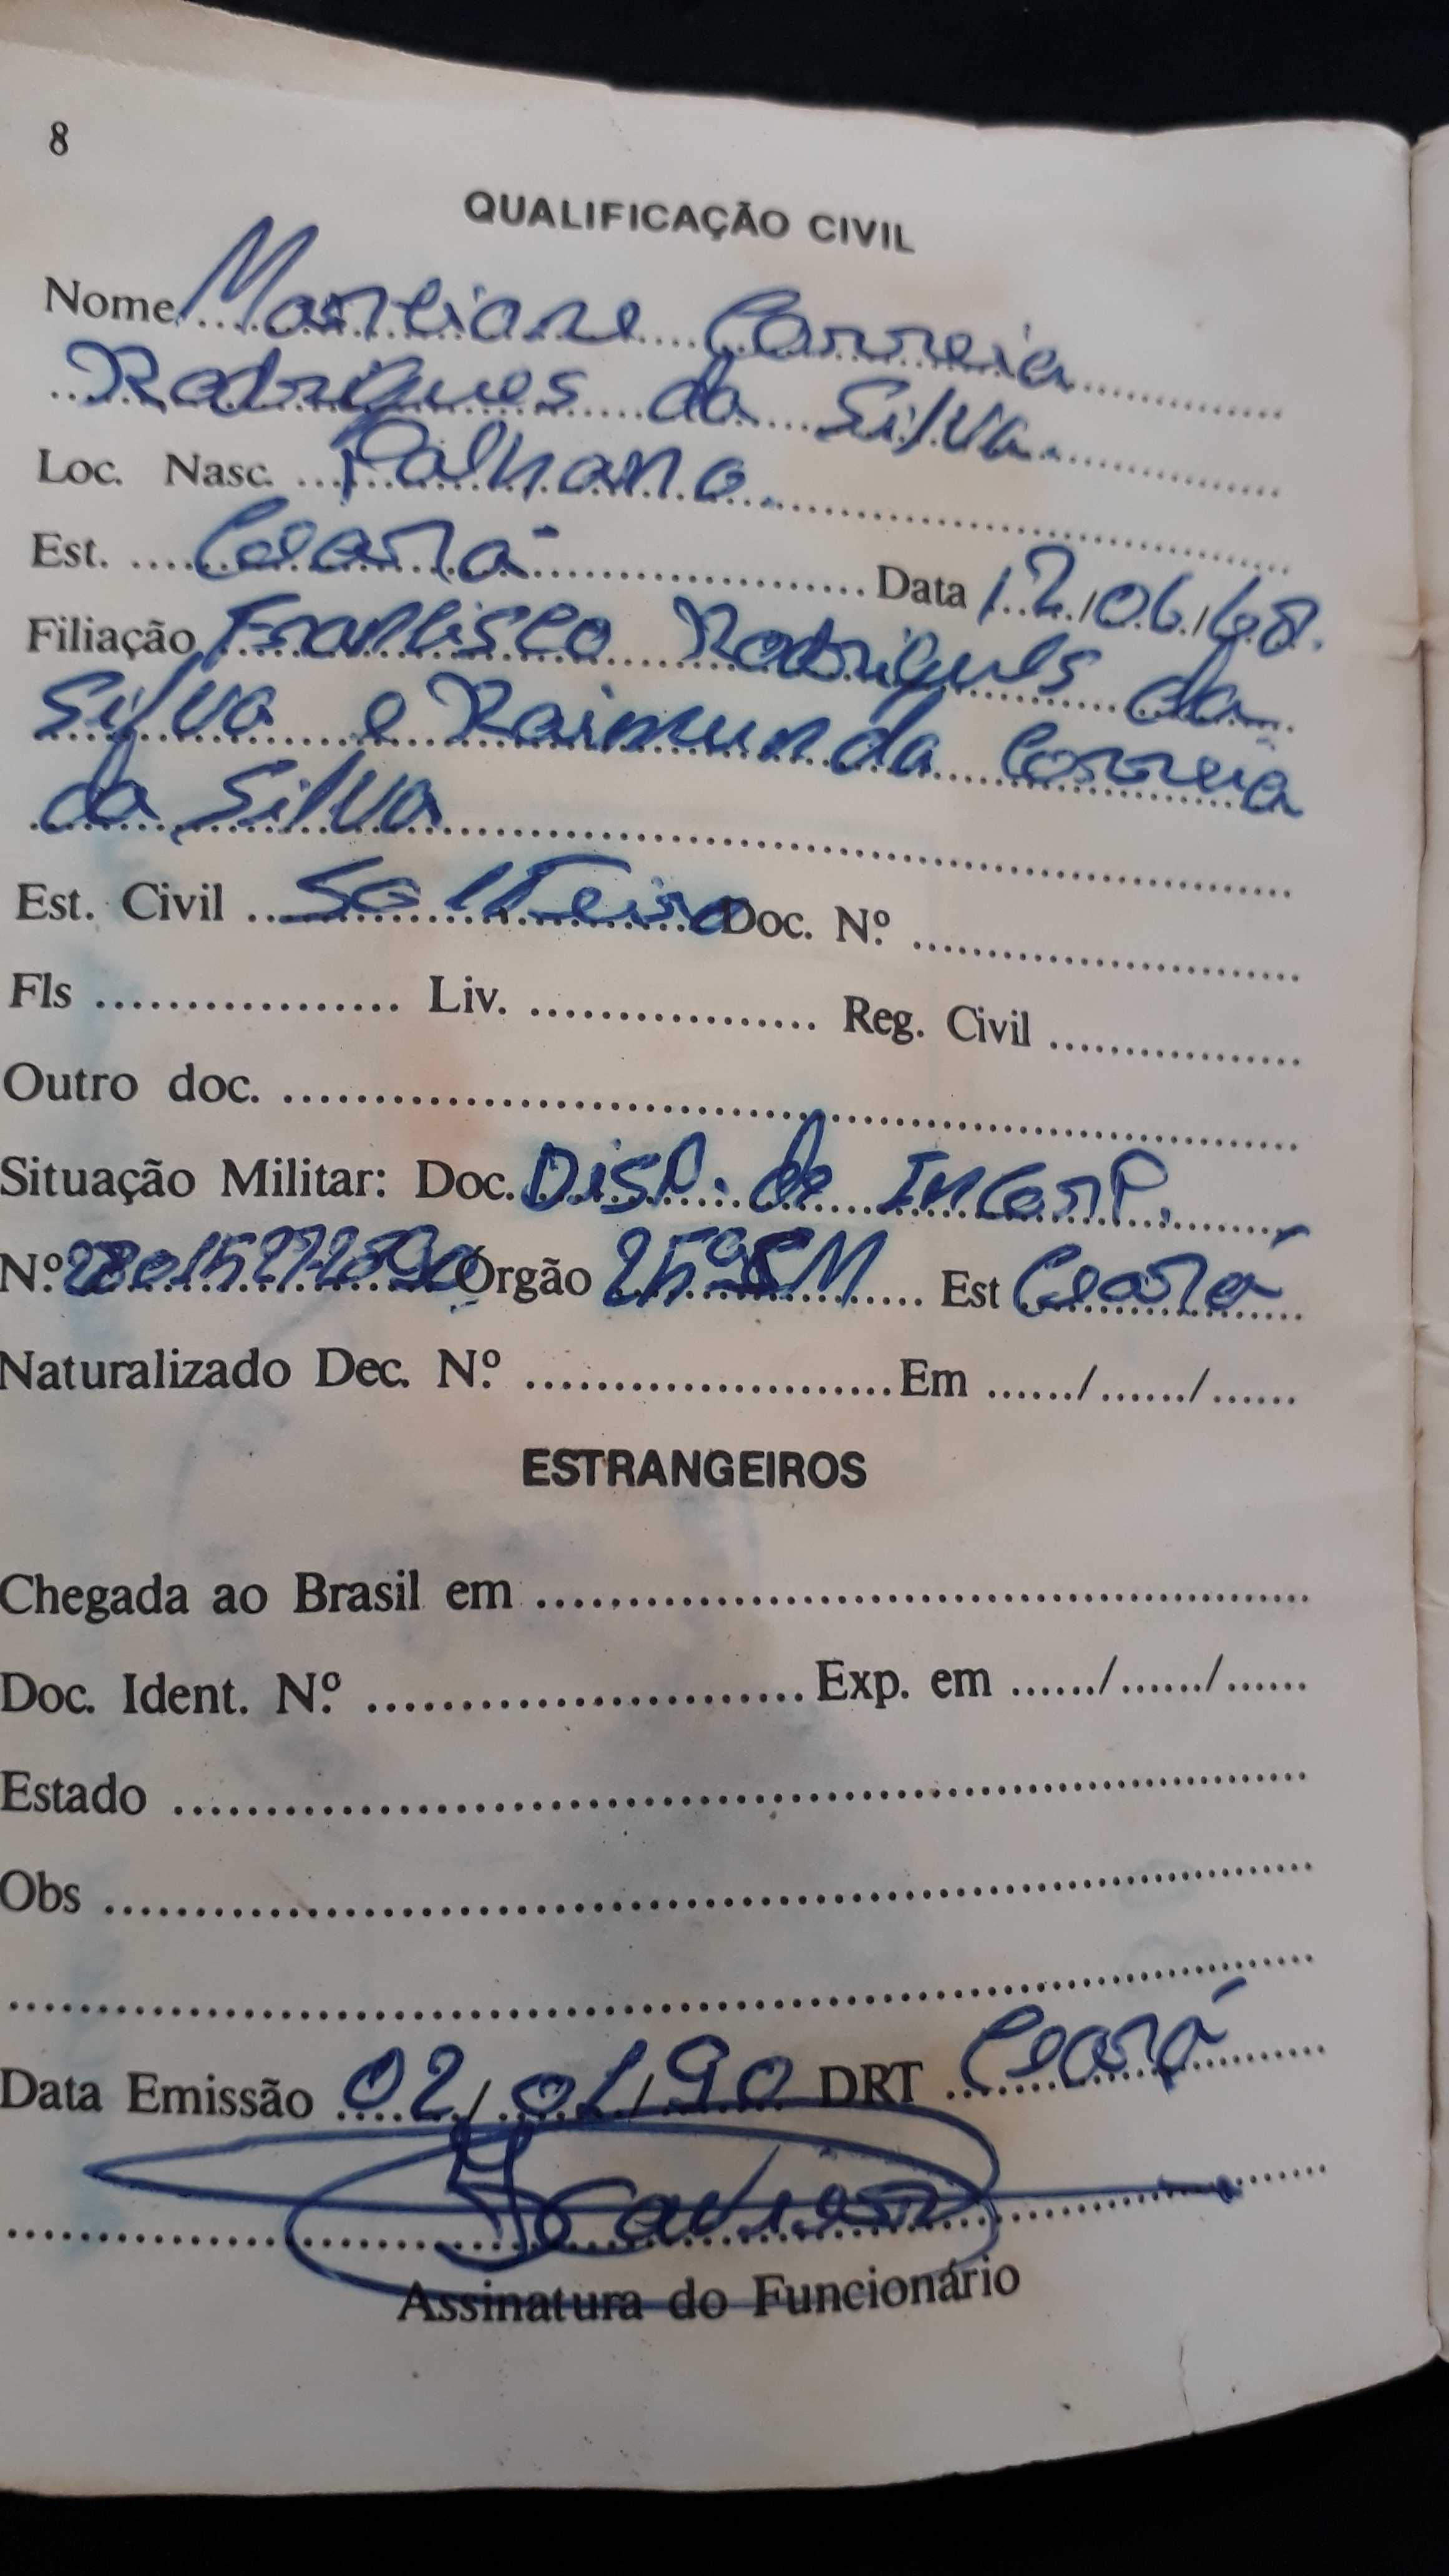 8
QUALIFICAÇÃO CIVIL
Nome Marliane Correia
Rodrigues da Silva
Loc. Nasc. Palhano
Est. Ceará Data 12/06/68
Filiação Francisco Rodrigues da
Silva e Raimunda Correia
da Silva
Est. Civil Solteiro Doc. Nº
Fls Liv. Reg. Civil
Outro doc.
Situação Militar: Doc. Disp. de Incorp.
Nº Orgão 25ª SM Est Ceará
Naturalizado Dec. Nº Em / /
ESTRANGEIROS
Chegada ao Brasil em
Doc. Ident. Nº Exp. em / /
Estado
Obs
Data Emissão 02/01/90 DRT Ceará
Assinatura do Funcionário